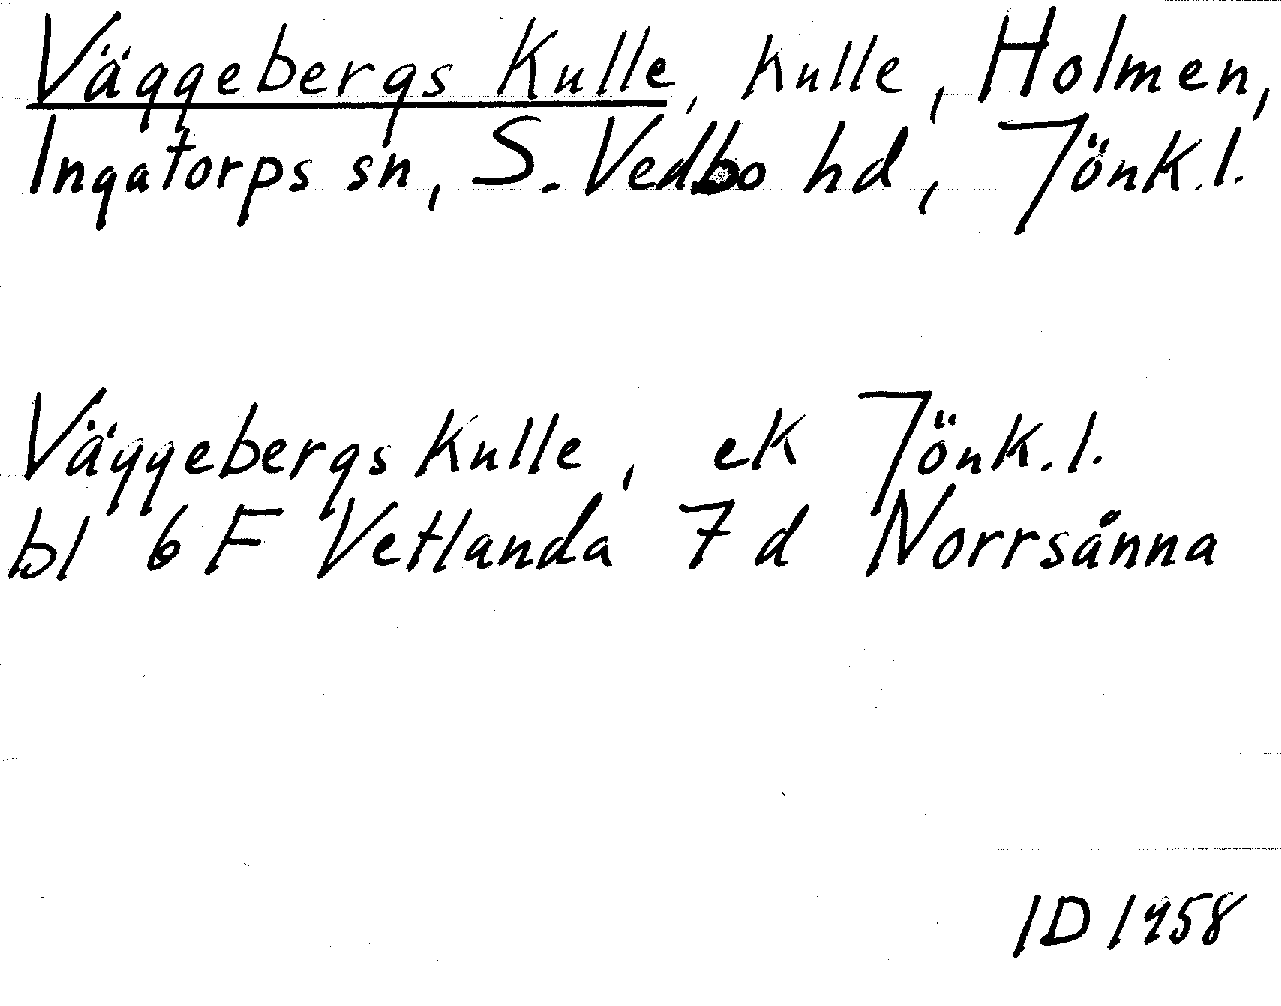 Väggebergs Kulle, kulle, Holmen,
Ingatorps sn, S. Vedbo hd, Jönk.l.
Väggebergs kulle, ek Jönk.l.
bl 6 F Vetlanda 7 d Norrsånna
ID 1958